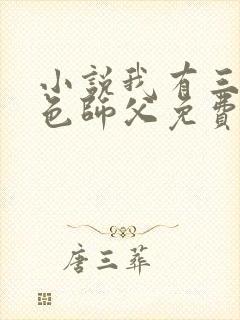 小說我有三
色師父免費
唐三葬